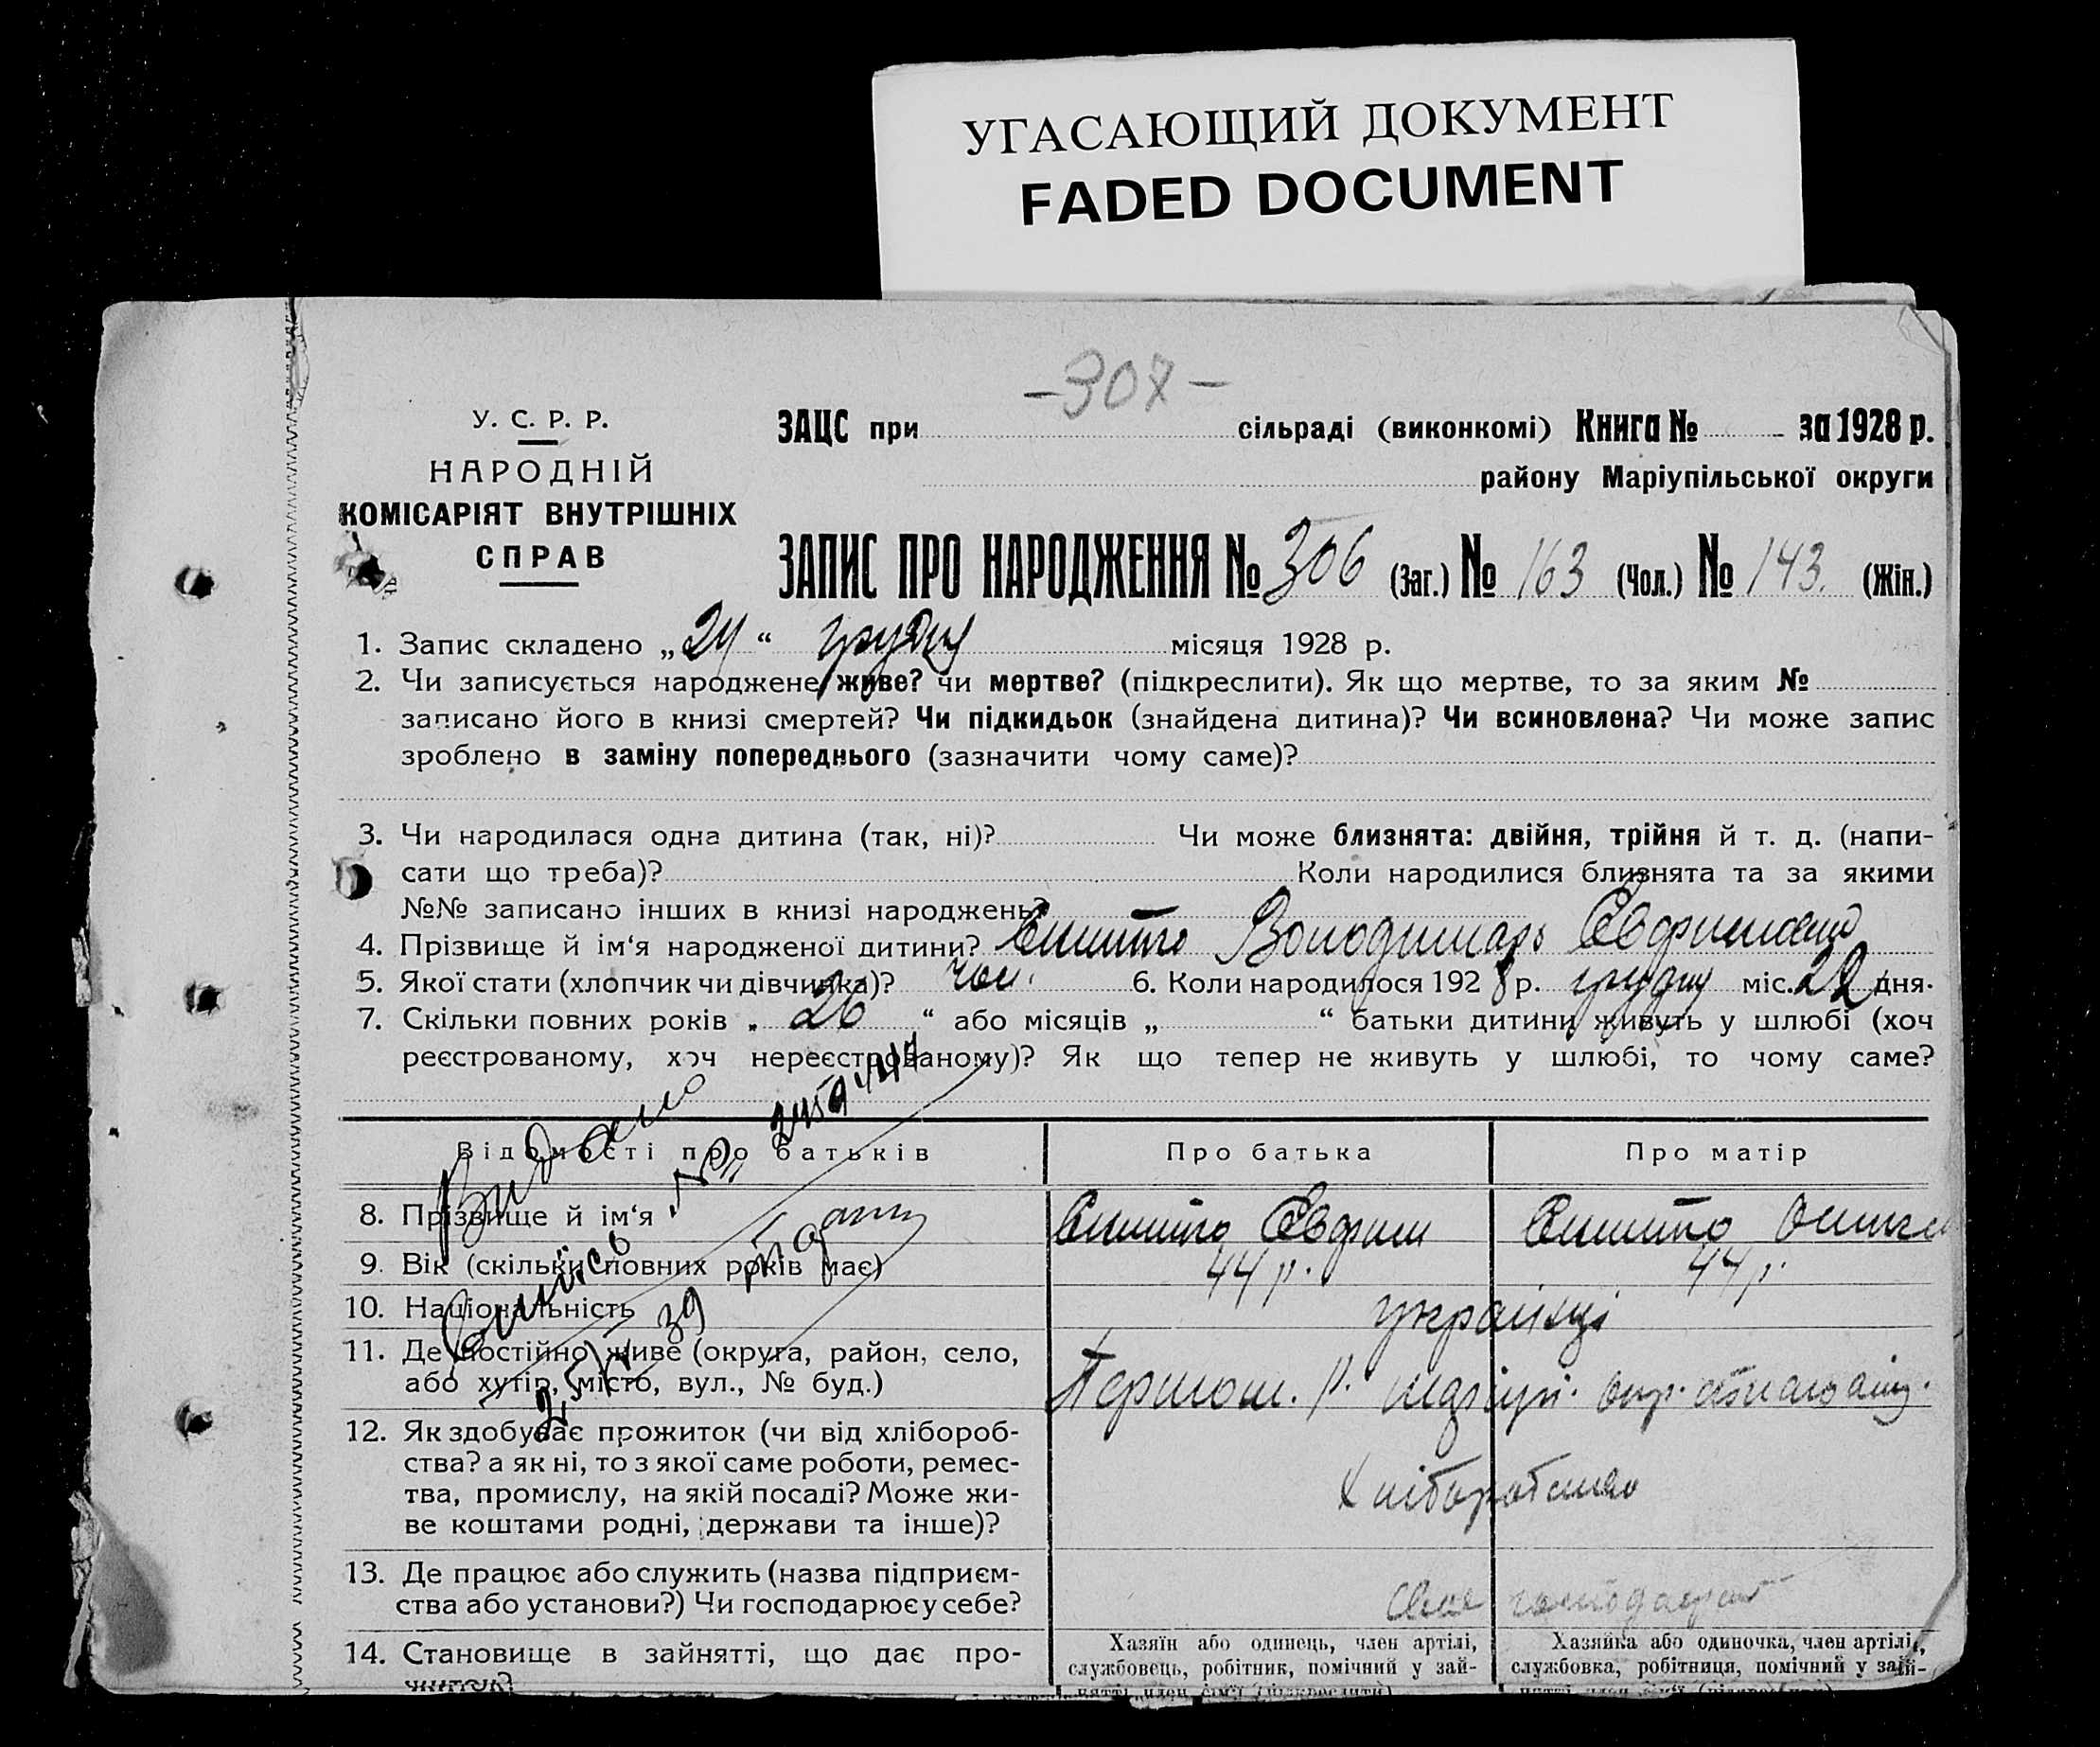 УГАСАЮЩИЙ ДОКУМЕНТ
FADED DOCUMENT
-307-
У. С. Р. Р.
НАРОДНІЙ
КОМІСАРІЯТ ВНУТРІШНІХ
СПРАВ
ЗАЦС при сільраді (виконкомі) Книга № за 1928 р.
району Маріупільської округи
ЗАПИС ПРО НАРОДЖЕННЯ № 306 (Заг.) № 163 (Чол.) № 143. (Жін.)
1. Запис складено „24“ грудня місяця 1928 р.
2. Чи записується народжене живе? чи мертве? (підкреслити). Як що мертве, то за яким №
записано його в книзі смертей? Чи підкидьок (знайдена дитина)? Чи всиновлена? Чи може запис
зроблено в заміну попереднього (зазначити чому саме)?
3. Чи народилася одна дитина (так, ні)? Чи може близнята: двійня, трійня й т. д. (напи-
сати що треба)? Коли народилися близнята та за якими
№№ записано інших в книзі народжень?
4. Прізвище й ім‘я народженої дитини? Володимарь
5. Якої стати (хлопчик чи дівчинка)? чол. 6. Коли народилося 1928 р. грудня міс. 22 дня.
7. Скільки повних років „ 26 “ або місяців „ “ батьки дитини живуть у шлюбі (хоч
реєстрованому, хоч нереєстрованому)? Як що тепер не живуть у шлюбі, то чому саме?
Відомості про батьків Про батька Про матір
Видано
8. Прізвище й ім‘я
9. Вік (скільки повних років має) 44 р. 44 р.
10. Національність українці
39
11. Де постійно живе (округа, район, село,
або хутір, місто, вул., № буд.)
12. Як здобуває прожиток (чи від хлібороб-
ства? а як ні, то з якої саме роботи, ремес-
тва, промислу, на якій посаді? Може жи-
ве коштами родні, держави та інше)?
Хліборобство
13. Де працює або служить (назва підприєм-
ства або установи?) Чи господарює у себе?
Своє
14. Становище в зайнятті, що дає про-
житок?
Хазяїн або одинець, член артілі,
службовець, робітник, помічний у зай-
нятті член сім'ї (підкреслити)
Хазяйка або одиночка, член артілі,
службовка, робітниця, помічний у зай-
нятті член сім'ї (підкреслити)